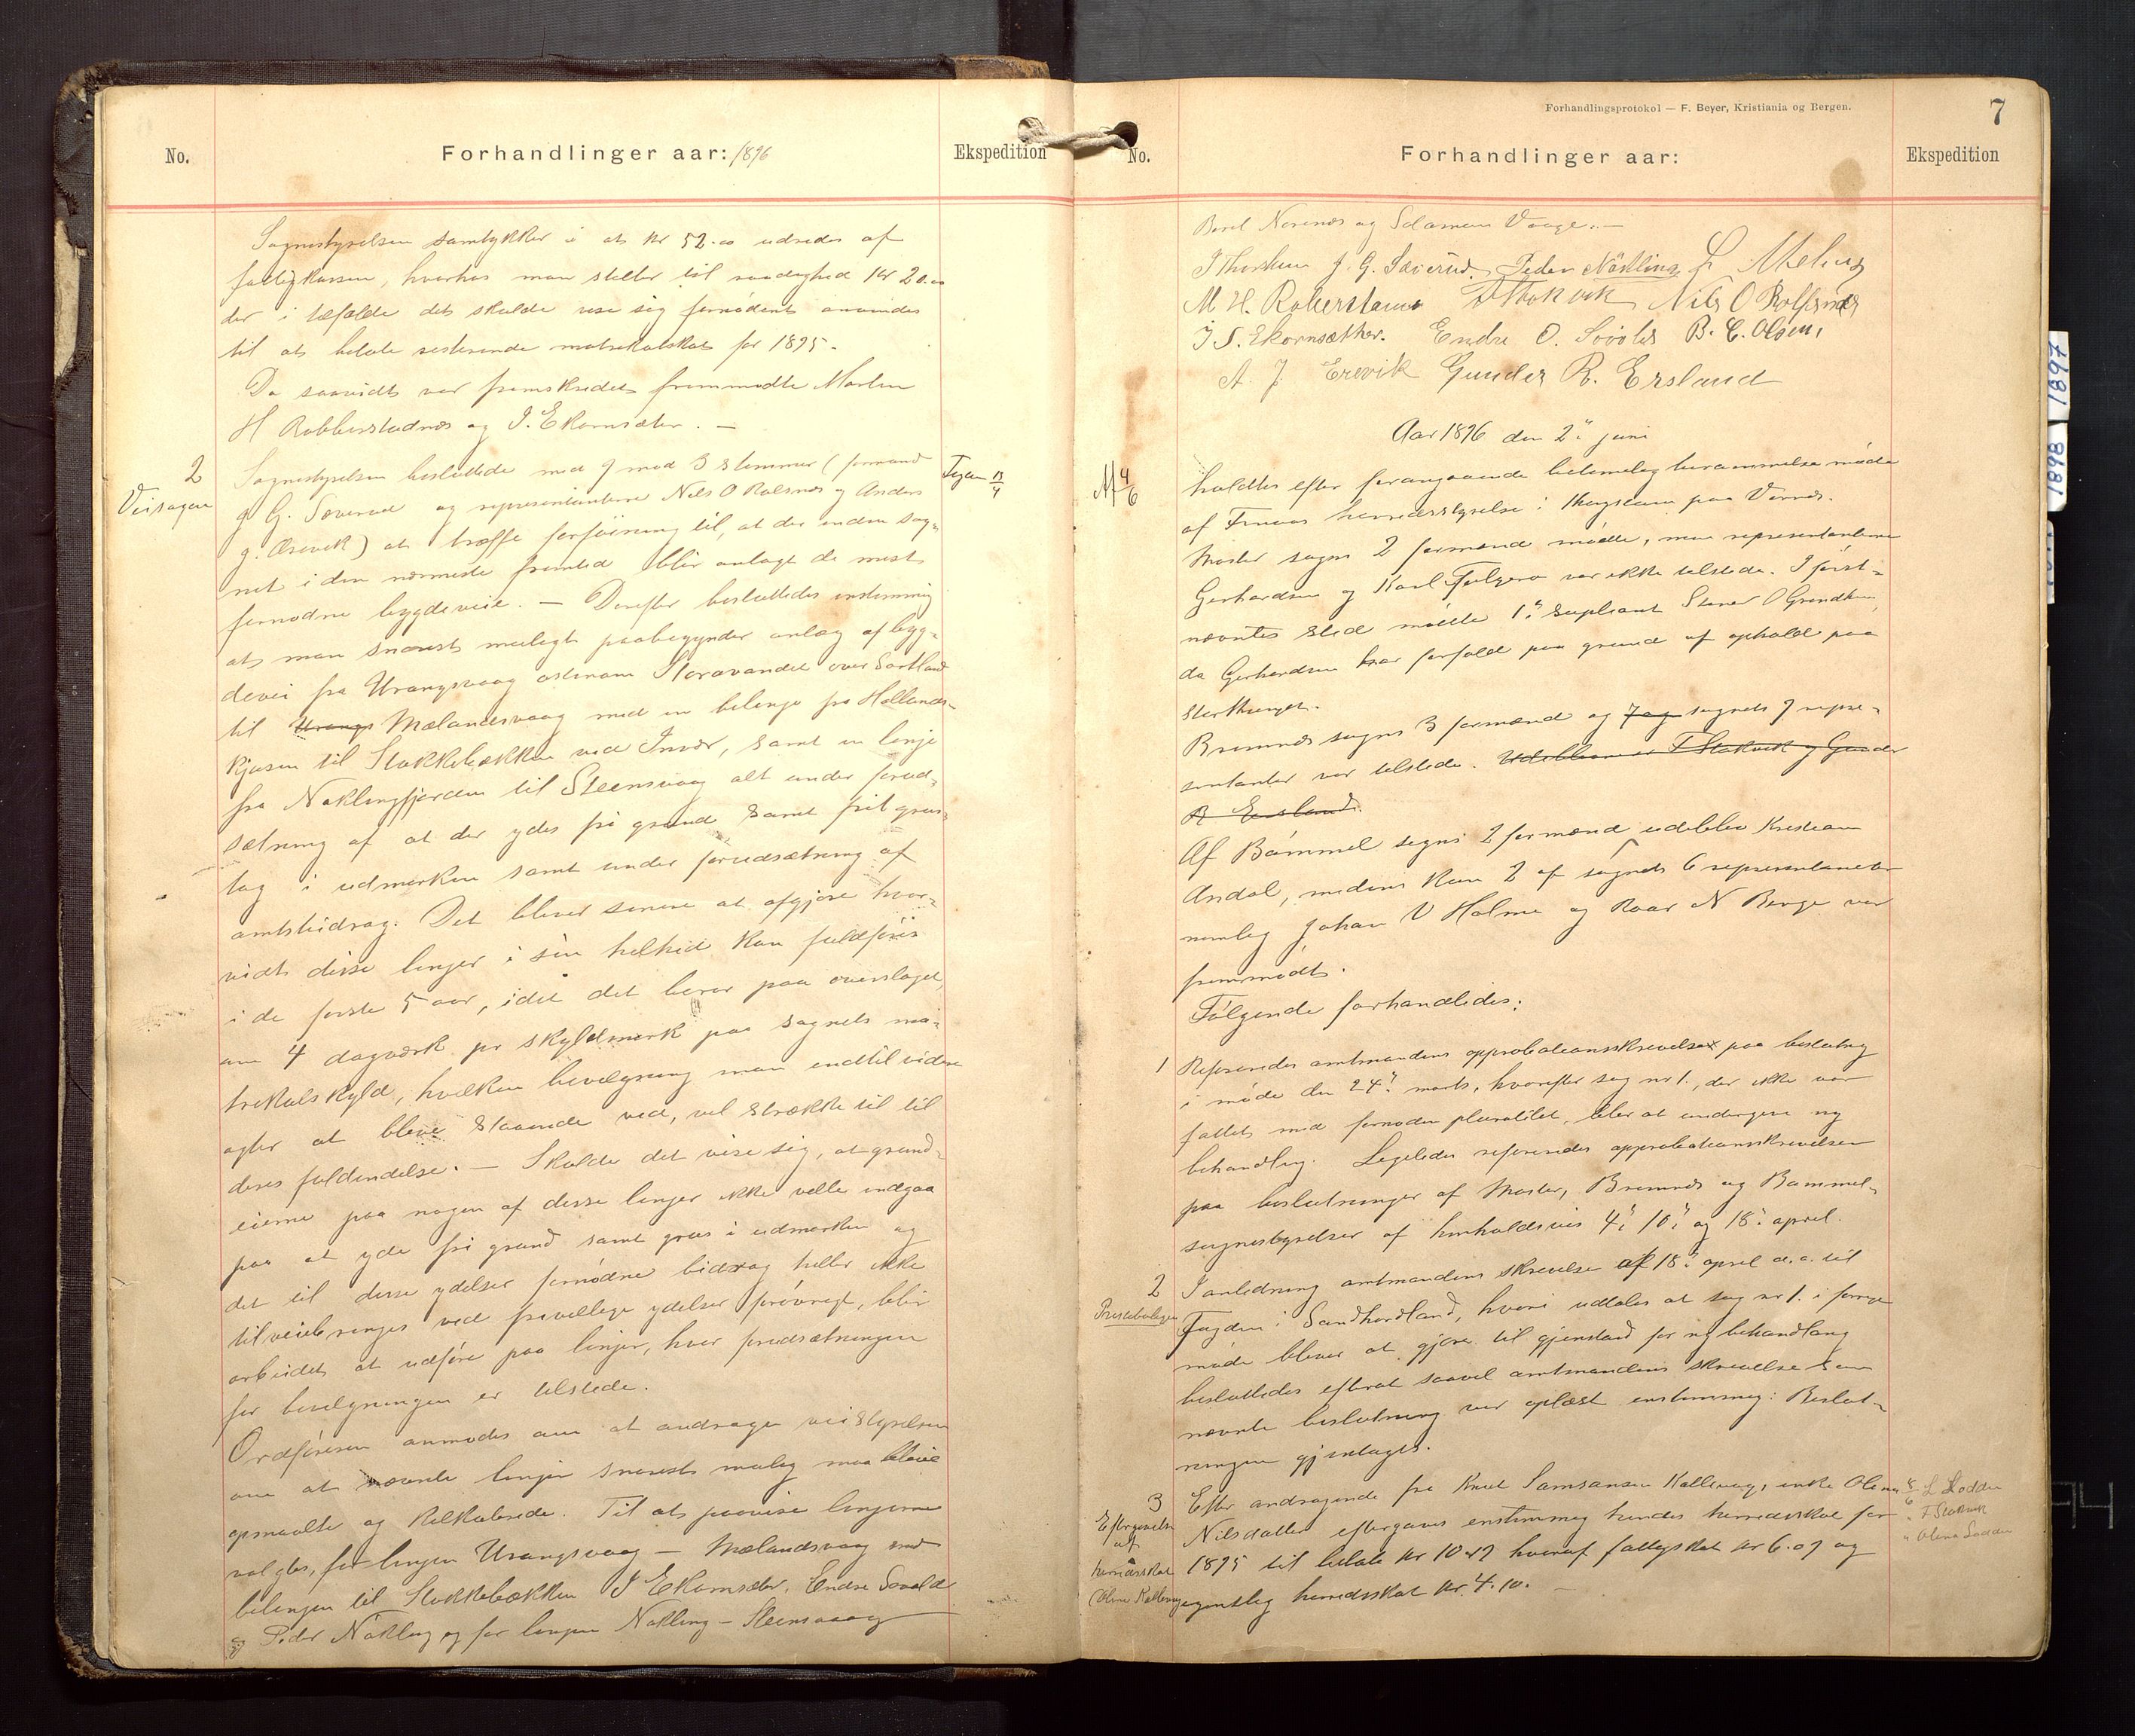 No.
Forhandlinger aar: 1896
Ekspedition
Sognestyrelsen samtykker i at kr 52.00 udredes af
fattigkassen, hvorhos man stiller til raadighed kr 20.00
der i tilfælde det skulde vise sig fornødent anvendes
til at betale resterende matrikulskat for 1895.
Da saavidt var fremskredet fremmødte Morten
H Robberstadnes og I. Ekornsæter. —
2
Veisagen
Sognestyrelsen besluttede med 7 mod 3 stemmer (formand
J G. Sæverud og repræsentanterne Nils O Rolfsnes og Anders
J. Ærevik) at træffe forføining til, at der inden sog-
net i den nærmeste fremtid blir anlagt de mest
fornødne bygdeveie. — Derefter besluttedes enstemmig
at man snarest muligt paabegynder anlæg af byg-
devei fra Urangsvaag østenom Storavandet over Sortland
til Urangs Mælandsvaag med en bilinje fra Hollands-
kjosen til Stokkebækken ved Innvær, samt en linje
fra Nøklingfjorden til Steensvaag alt under forud-
sætning af at der ydes fri grund samt frit grus-
tag i udmarken samt under forudsætning af
amtsbidrag. Det bliver senere at afgjøre hvor-
vidt disse linjer i sin helhed kan fuldføres
i de første 5 aar, idet det beror paa overslaget,
om 4 dagværk pr skyldmark paa sognets ma-
trikulskyld, hvilken bevilgning man indtil videre
agter at blive staaende ved, vil strække til til
deres fuldendelse. — Skulde det vise sig, at grund-
eierne paa nogen af disse linjer ikke ville indgaa
paa at yde fri grund samt grus i udmarken og
det til disse ydelser fornødne bidrag heller ikke
tilveiebringes ved frivillige ydelser forøvrigt, blir
arbeidet at udføre paa linjer, hvor forudsætningen
for bevilgningen er tilstede.
Ordføreren anmodes om at andrage veistyrelsen
om at nævnte linjer snarest mulig maa blive
opmaalte og kalkulerede. Til at paavise linjerne
valgtes, for linjen Urangsvaag — Mælandsvaag med
bilinjen til Stokkebækken I Ekornsæter, Endre Søvold
og Peder Nøkling og for linjen Nøkling — Steensvaag
Fogden 13/4
Forhandlingsprotokol — F. Beyer, Kristiania og Bergen.
7
No.
Forhandlinger aar:
Ekspedition
Berel Nesenes og Salamon Vaage. —
I Thorsen J. G. Sæverud. Peder Nökling L Meling
M H. Roberstanes T Stokvik Nils O Rolfsnes
I S. Ekornsæther. Endre O. Søvold B. C. Olsen,
A. J. Erevik Gunder R. Ersland
Aar 1896 den 2den juni
M 4/6
holdtes efter forangaaende betimelig berammelse møde
af Finaas herredsstyrelse i thingstuen paa Vernes.
Moster sogns 2 formænd mødte, men repræsentanterne
Gerhardsen og Karl Fylgero var ikke tilstede. I først-
nævntes sted mødte 1ste supleant Stener O Grindheim,
da Gerhardsen har forfald paa grund af ophold paa
Storthinget.
Bremnes sogns 3 formænd og 7 og sognets 7 repræ-
sentanter var tilstede. Udeblevne T Stokvik og Gunder
R Ersland.
Af Bømmel sogns 2 formænd udeblev Kristian
Andal, medens kun 2 af sognets 6 repræsentanter
nemlig Johan V Holme og Roar N Berge var
fremmødt.
Følgende forhandledes:
1
Refereredes amtmandens approbationsskrivelser paa beslutning
i møde den 24de marts, hvorefter sag nr 1., der ikke var
fattet med fornøden pluralitet, blir at undergive ny
behandling. Ligeledes refereredes approbationsskrivelsen
paa beslutninger af Moster, Bremnes og Bømmel-
sognestyrelser af henholdsvis 4de, 10de og 18de april.
2
Prestebolig
I anledning amtmandens skrivelse af 18de april d.a. til
Fogden i Søndhordland, hvori udtales at sag nr 1. i forrige
møde bliver at gjøre til gjenstand for ny behandling
besluttedes efterat saavel amtmandens skrivelse som
nævnte beslutning var oplæst enstemmig: Beslut-
ningen gjentages.
3
Eftergivelse
af
herredsskat
Oline Kallevaag
Efter andragende fra Knud Samsonsen Kallevaag, enke Olena
Nilsdatter eftergaves enstemmig hendes herredsskat for
1895 til beløb kr 10.17 hvoraf fattigskat kr 6.07 og
egentlig herredsskat kr. 4.10. —
5/6 L Lodden
" T Stokvik
" Olena Lodden
1897
1898